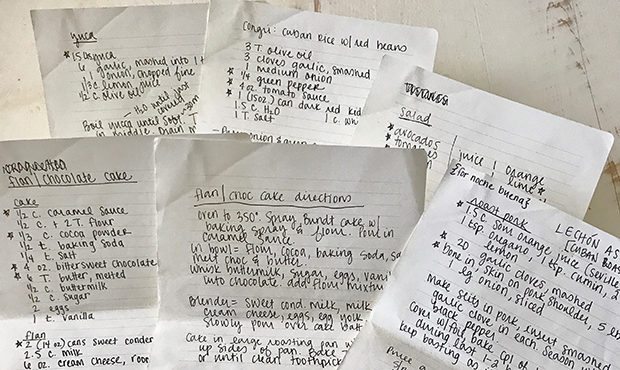 yuca
* 15 oz yuca
6 garlic, mashed into 1 t
1 onion, chopped fine
1/3 c lemon juice
1/2 c. olive oil
H2O until
Boil yuca until soft
Congri: Cuban Rice w/ red beans
3 T. olive oil
3 cloves garlic, smashed
1 medium onion
* 1/4 green pepper
* 4 oz. tomato sauce
* 1 (15oz) can dark red kid
1.5 c. H2O
1 T. salt
1 c. wh
Salad
* avocados
* tomatoes
juice 1 orange
1 lime *
{for noche buena}
flan / chocolate cake
cake
* 1/2 c. caramel sauce
1/2 c. + 2 T. flour
* 1/2 c. cocoa powder
1/2 t. baking soda
1/4 t. salt
* 4 oz. bittersweet chocolate
* 4 T. butter, melted
1/2 c. buttermilk
1/2 c. sugar
2 eggs
1 t. vanilla
flan
* 2 (14 oz) cans sweet conden
2.5 c. milk
6 oz. cream cheese, room
flan / choc cake directions
Oven to 350°. Spray Bundt cake w/
baking spray & flour. Pour in
caramel sauce.
In bowl = flour, cocoa, baking soda, sa
melt choc & butter.
whisk buttermilk, sugar, eggs, vani
into chocolate. add flour mixtur
Blender = sweet cond. milk, milk
cream cheese, eggs, egg yolk
slowly pour over cake batt
Cake in large roasting pan w
up sides of pan. Bake
or until clean toothpick
LECHÓN AS
[CUBAN ROAS
roast pork
* 1.5 c. sour orange juice (Seville
1 tsp. oregano, 1 tsp. cumin, 2
lemon
* 20 garlic cloves, mashed
* bone in skin on pork shoulder, 5 lb
1 lg onion, sliced
make slits in pork, insert smashed
garlic clove in each. Season w
black pepper.
cover w/ foil, bake
during last 1-2 h
keep basting as